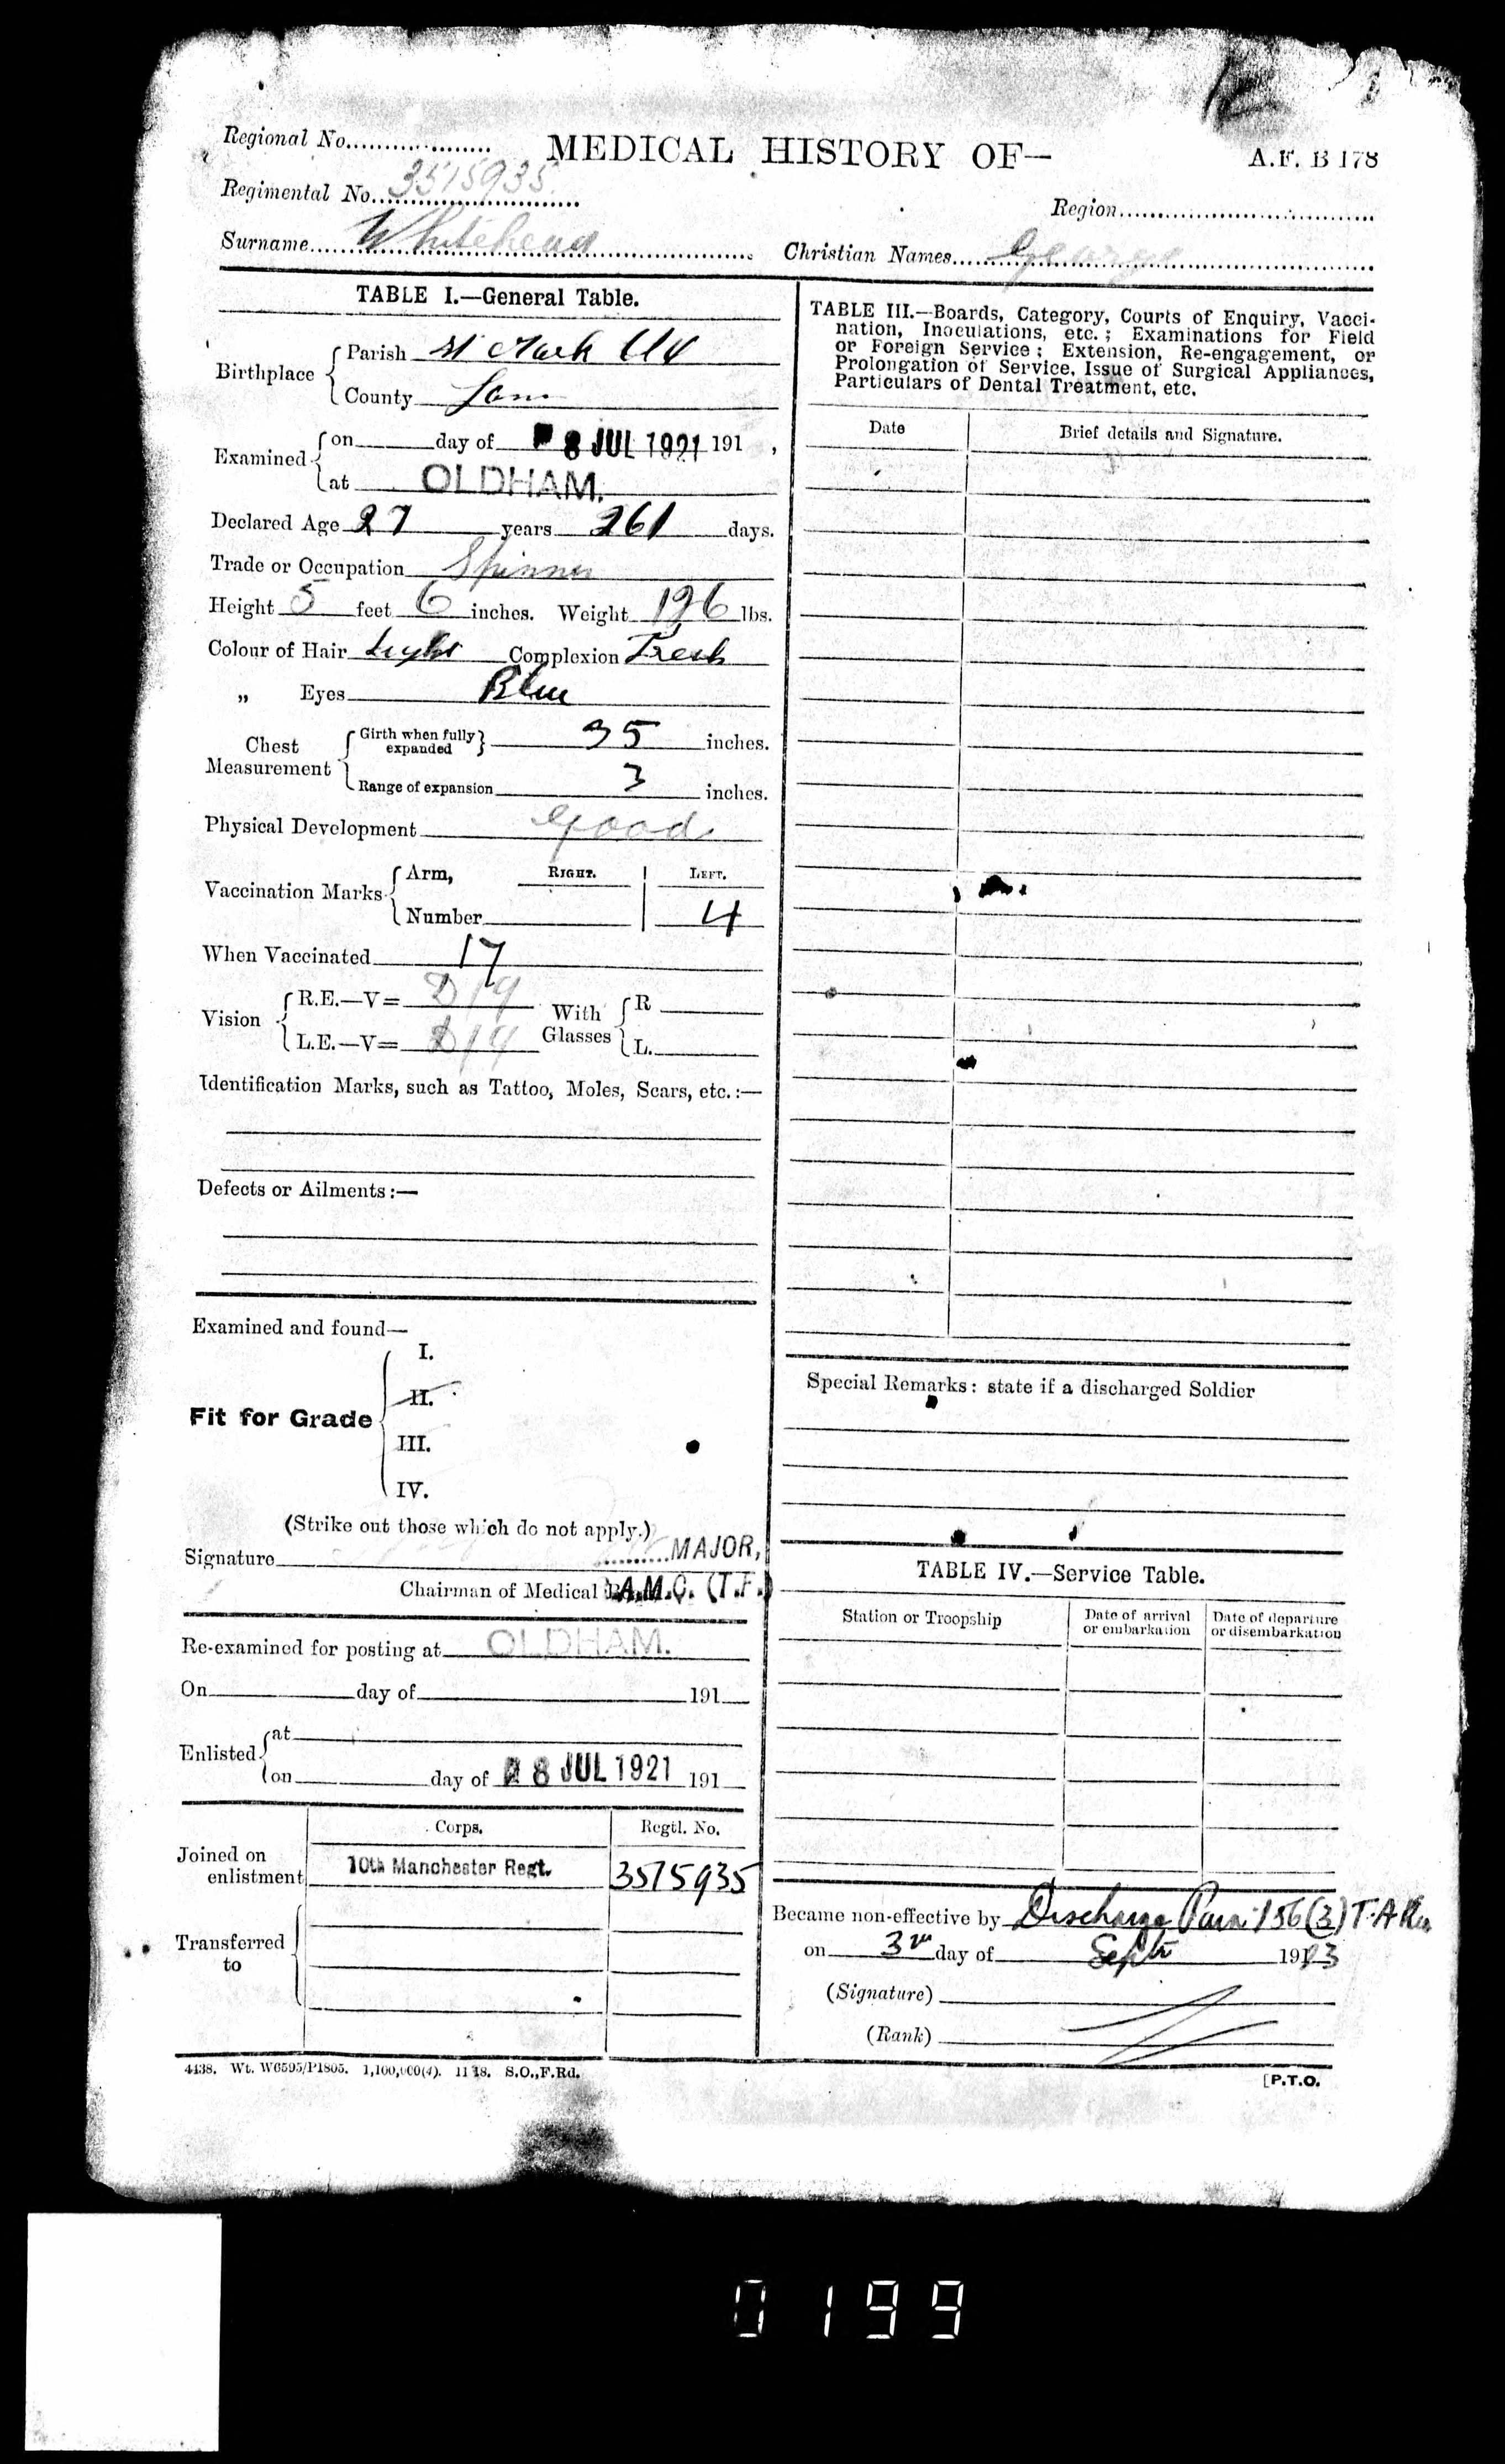 Regional No.
MEDICAL HISTORY OF—
A.F. B 178
Regimental No. 3515935.
Region
Surname Whitehead
Christian Names George
TABLE I.—General Table.
Birthplace
Parish St Mark
County Lanc
Examined
on day of 8 JUL 1921 191 ,
at OLDHAM.
Declared Age 27 years 261 days.
Trade or Occupation Spinner
Height 5 feet 6 inches. Weight 126 lbs.
Colour of Hair Light Complexion Fresh
„ Eyes Blue
Chest Measurement
Girth when fully expanded 35 inches.
Range of expansion 3 inches.
Physical Development Good
Vaccination Marks
Arm, RIGHT. LEFT.
Number 4
When Vaccinated 17
Vision
R.E.—V=
L.E.—V=
With Glasses
R
L.
Identification Marks, such as Tattoo, Moles, Scars, etc.:—
Defects or Ailments:—
Examined and found—
Fit for Grade
I.
II.
III.
IV.
(Strike out those which do not apply.)
Signature MAJOR,
Chairman of Medical A.M.C. (T.F.)
Re-examined for posting at OLDHAM.
On day of 191
Enlisted
at
on day of 28 JUL 1921 191
Corps. Regtl. No.
Joined on enlistment
10th Manchester Regt. 3515935
Transferred to
4438. Wt. W6595/P1805. 1,100,000(4). 11 18. S.O.,F.Rd.
TABLE III.—Boards, Category, Courts of Enquiry, Vacci-
nation, Inoculations, etc.; Examinations for Field
or Foreign Service; Extension, Re-engagement, or
Prolongation of Service, Issue of Surgical Appliances,
Particulars of Dental Treatment, etc.
Date Brief details and Signature.
Special Remarks: state if a discharged Soldier
TABLE IV.—Service Table.
Station or Troopship
Date of arrival or embarkation
Date of departure or disembarkation
Became non-effective by Discharge Para 156(3) T.A
on 3rd day of Sept 1923
(Signature)
(Rank)
[P.T.O.
0199